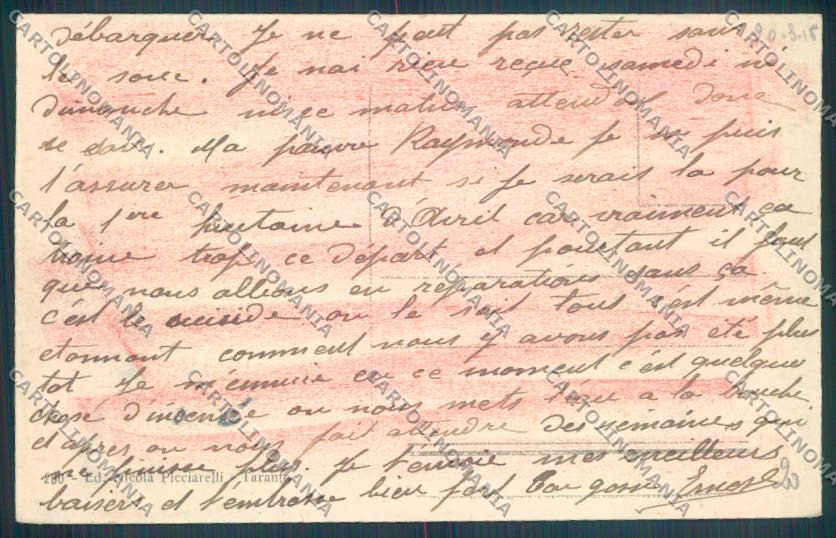 débarquer Je ne peut pas rester sans 20-3-15
le sou. Je nai rien reçue samedi ni
dimanche ni ce matin attendos donc
se soir. Ma pauvre Raymonde Je ne puis
t'assurer maintenant si Je serais la pour
la 1ere huitaine d'Avril car vraiment ça
traine trop ce départ et pourtant il faut
que nous allions en réparations sans ça
c'est le suicide ou le soit tout c'est même
etonnant comment nous y avons pas été plus
tot Je m'ennuie en ce moment c'est quelque
chose d'insensée on nous mets l'eau a la bouche
et apres on nous fait attendre des semaines qui
ne finisse plus. Je t'envoie mes meilleurs
280 - Ed. Nicola Picciarelli - Taranto
baisers et t'embrasse bien fort ton gosse Ernest
20
CARTOLINOMANIA